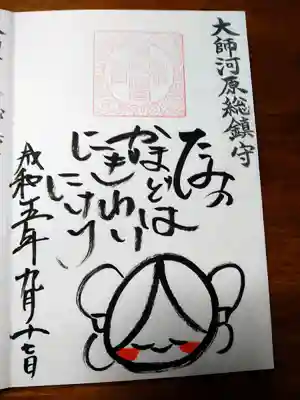 大師河原総鎮守
たみの
かまどは
にぎわひ
にけり
令和五年九月十七日